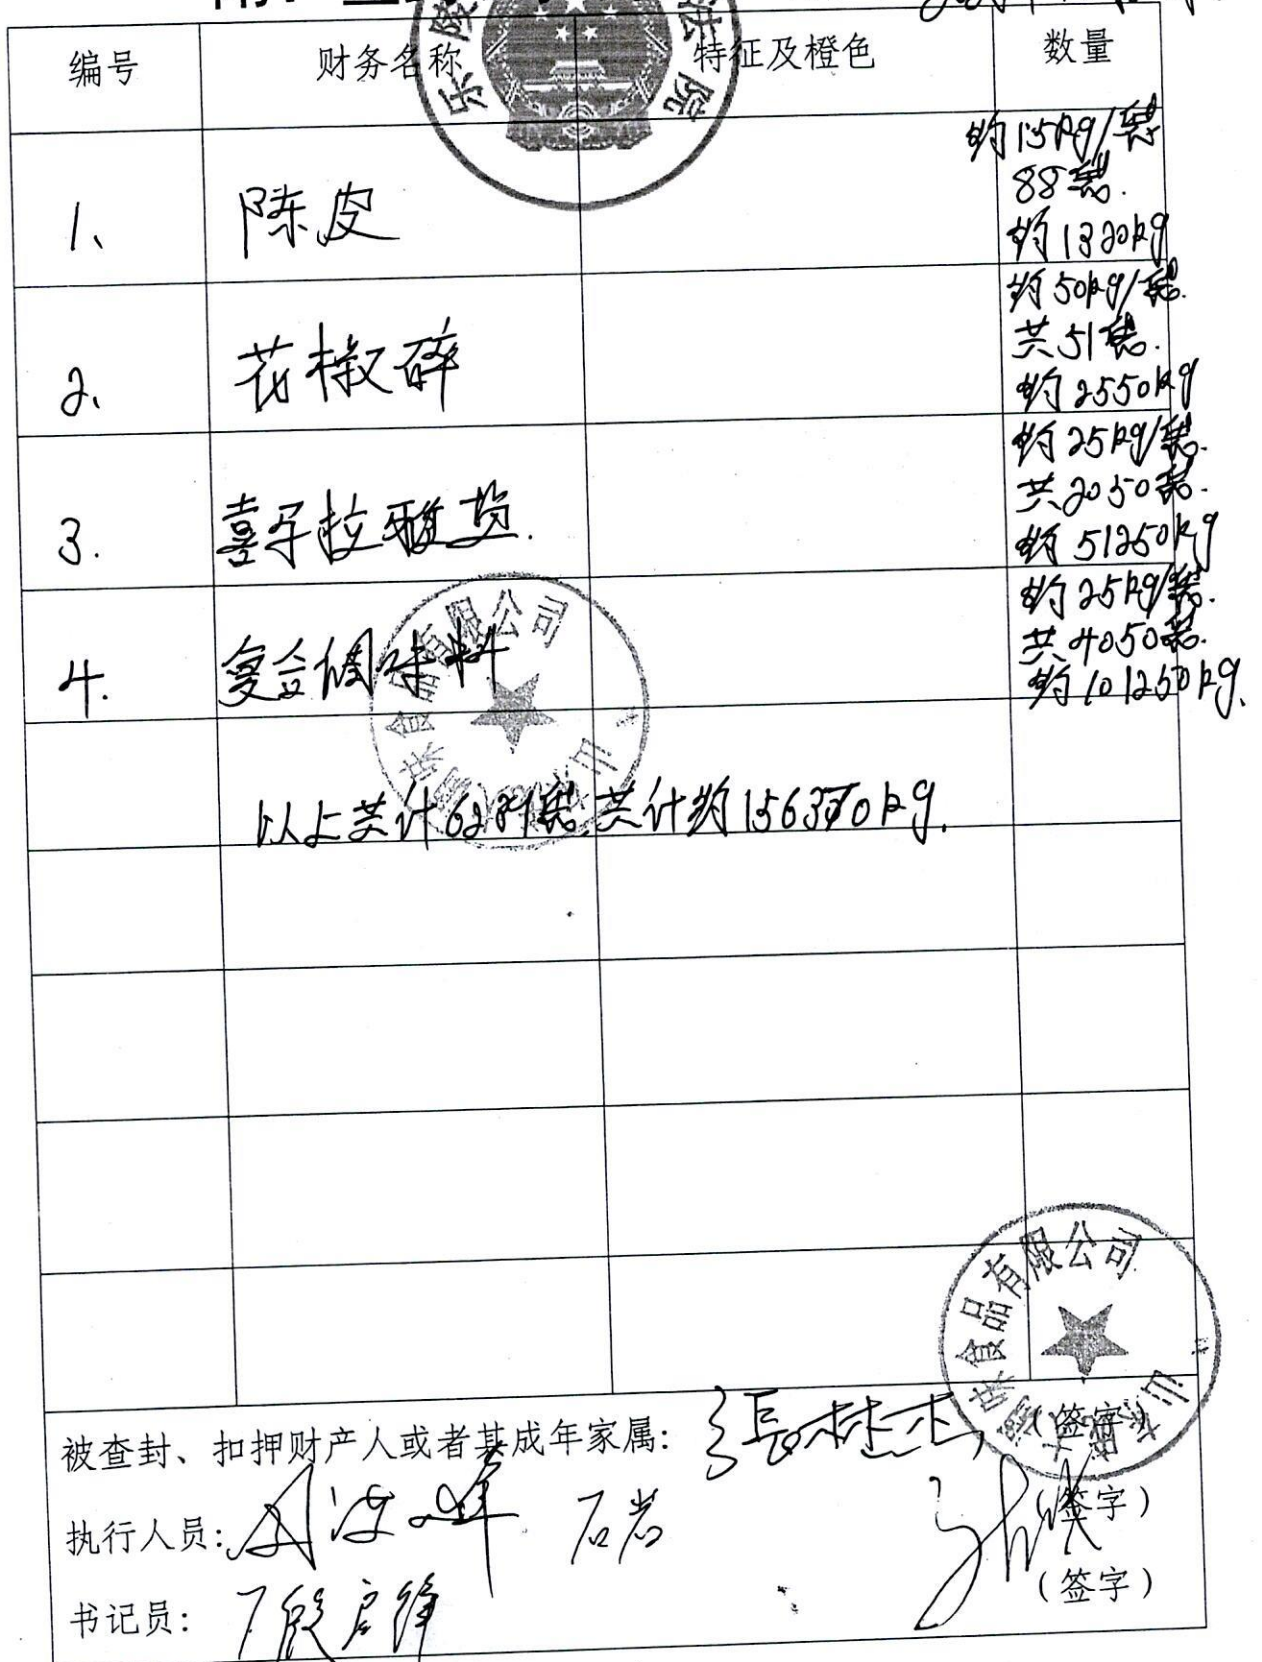 编号 财务名称 特征及橙色 数量
乐陵 法院
1、 陈皮 约15kg/袋
88袋.
约1320kg
2、 花椒碎 约50kg/袋.
共51袋.
约2550kg
3. 喜马拉雅盐. 约25kg/袋.
共2050袋.
约51250kg
4. 复合调味料 约25kg/袋.
共4050袋.
约101250kg.
味食品有限公司
以上共计6239袋 共计约156370kg.
味食品有限公司
被查封、扣押财产人或者其成年家属: (签字)
执行人员: 石岩 (签字)
书记员: (签字)